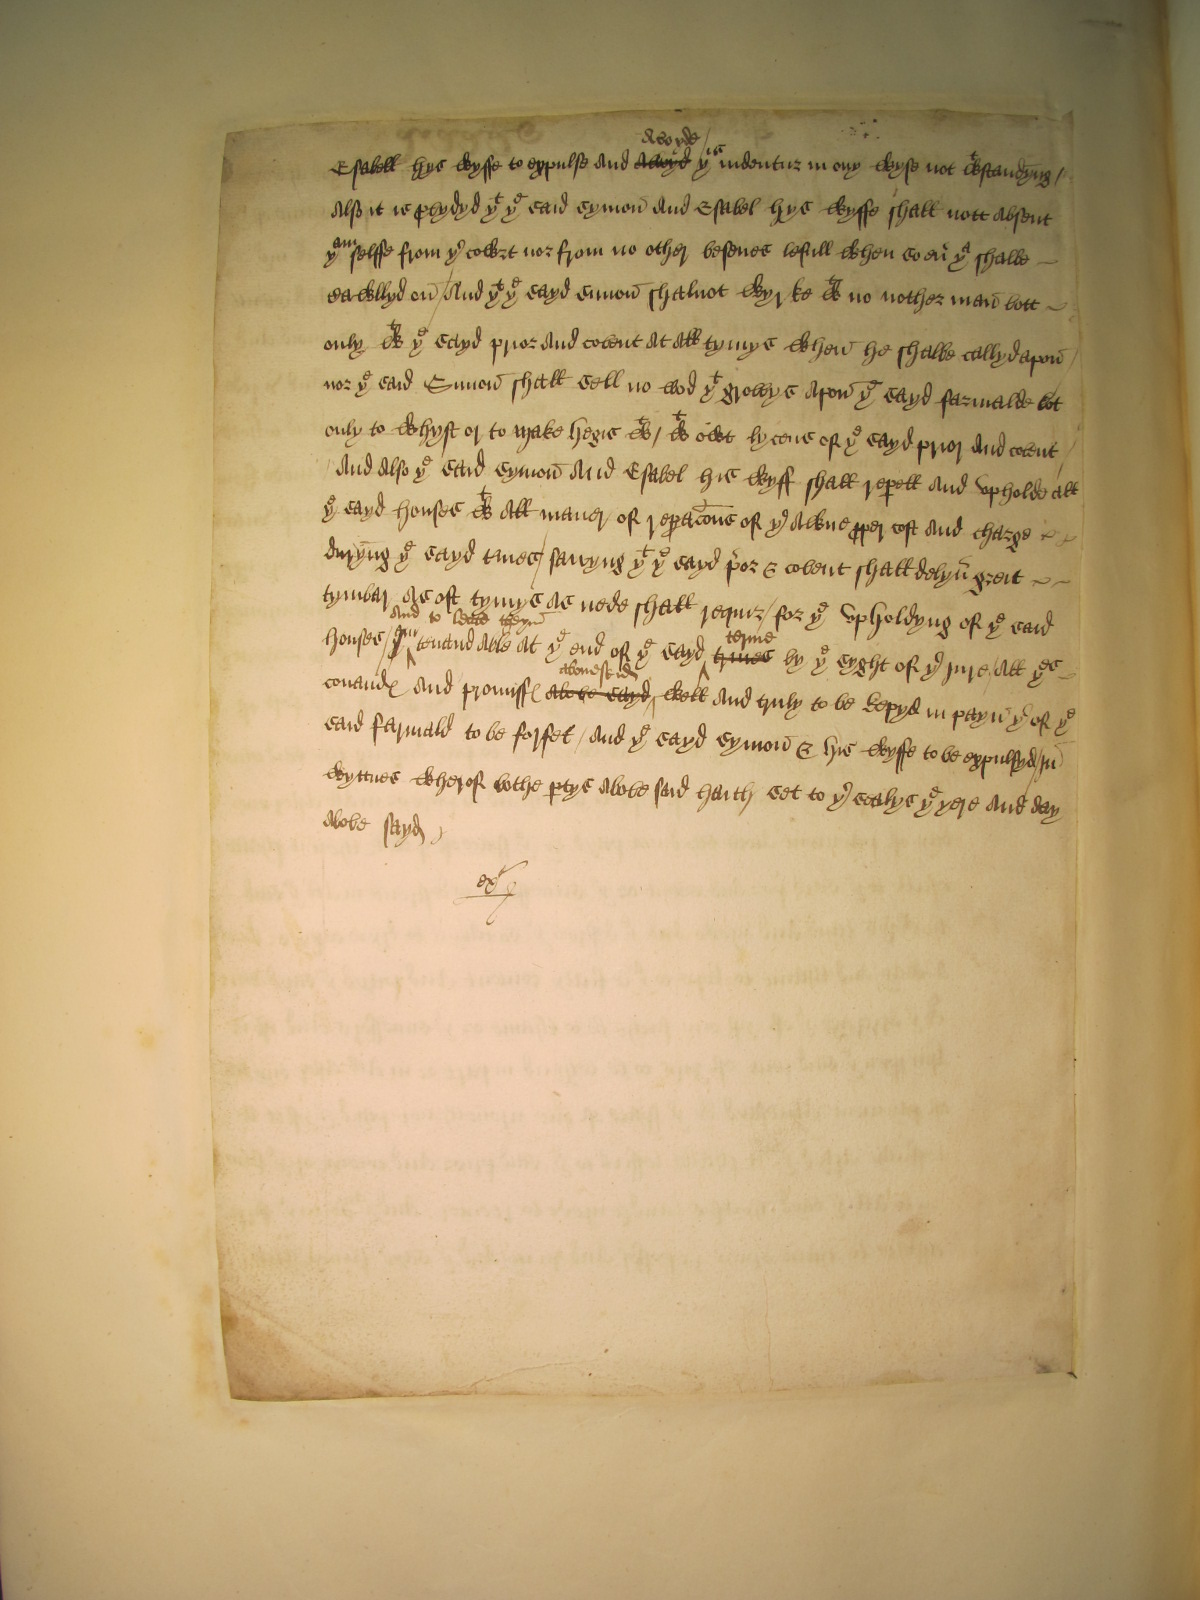 Avoyde /
Esabell hys wysse to expulse And Awoyd yis indentur in ony wyse not wtstandyng /
Also it is p'vydyd yt ye said Symon And Esabel hys wysse shall nott absent
yam selffe from yr cowrt nor from no other besenes lefull when so eu' ya shalbe
callyd on / And yt ye sayd Simon shalnot wyrke wt no nother man bott
only wt ye sayd prior And covent At All tymys when he shalbe callyd apon /
nor ye said Simon shall sell no wod yt growys Apon ye sayd farmalde bot
only to whyst or to make hegis wt / wt owt lycens of ye sayd prior And covent /
And Also ye said Symon And Esabel his wyff shall repell And Upholde All
ye sayd houses wt All maner of repacons of yr Awne pper cost And charge
duryng ye sayd tmes / savyng yt ye sayd p'or & covent shall delyu' gret
tymbar As oft tymys As nede shall requir / for ye Upholdyng of ye said
And to leve theym
houses / tenandable At ye end of ye sayd tmes by ye syght of yr jure / All yes
terme
abovesaid
conands And promiss above sayd, well And truly to be kepyd in payn yr of ye
said farmald to be forfet / And ye sayd Symon & his wysse to be expulsyd / In
wyttnes wherof bothe ptys Above said haith set to yr sealys ye yere And day
Above sayd /